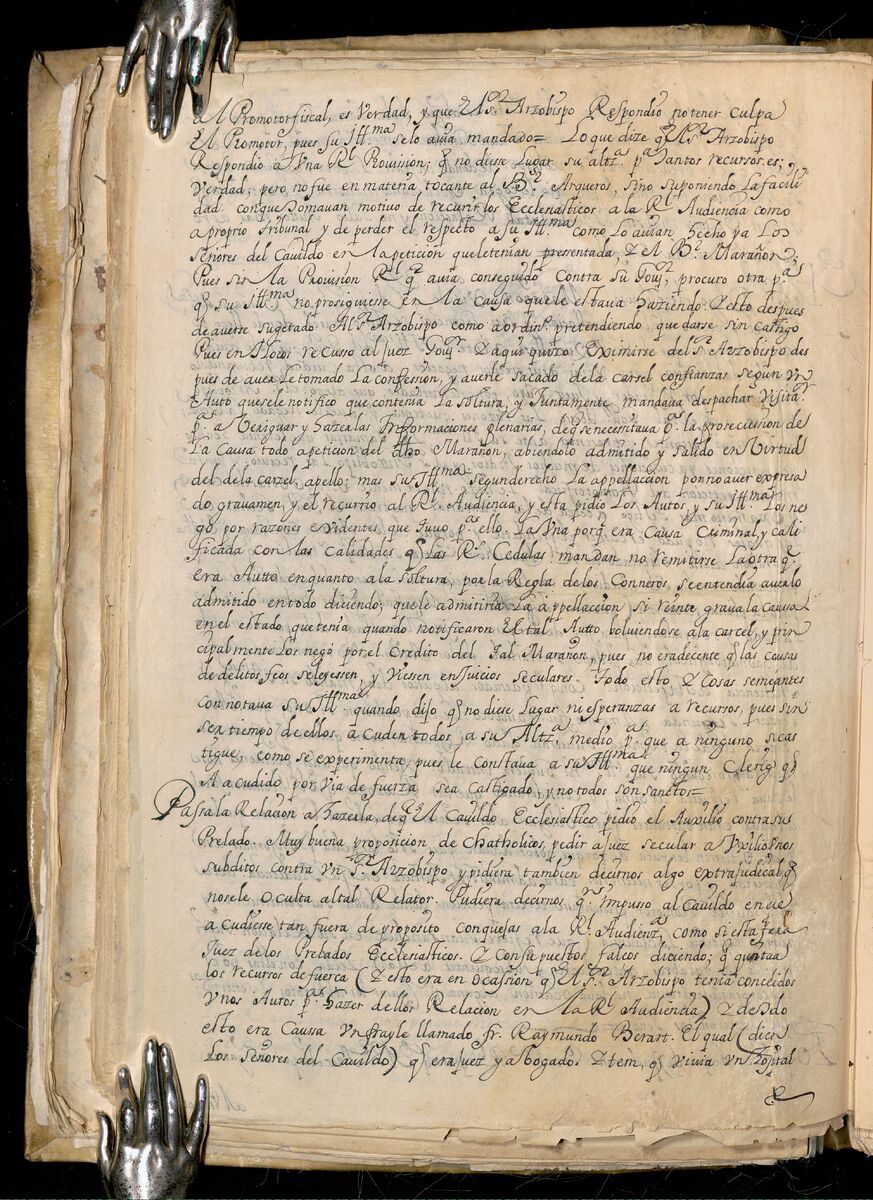 al Promotor fiscal, es Verdad, y que El S.ʳ Arzobispo Respondio no tener culpa
El Promotor, pues su Ill.ᵐᵃ se lo auia mandado= Lo que dize q̃ El S.ʳ Arzobispo
Respondio a Vna R.ˡ Prouision; q̃ no diese Lugar su altz.ᵃ p.ᵃ tantos recursos. es;
Verdad; pero no fue en materia tocante al B.ʳ Arqueros, sino suponiendo La facili
dad. con que tomauan motiuo de recurir los Ecclesiasticos a la R.ˡ Audiencia como
a proprio tribunal y de perder el respecto a su Ill.ᵐᵃ como Lo auian hecho ya Los
Señores del Cauildo en la peticion que le tenian pressentada, & el B.ʳ Marañon;
Pues sin la Prouision R.ˡ q.ᵉ auia conseguido Contra su Prou.ʳ, procuro otra p.ᵃ
q̃ su Ill.ᵐᵃ no prosiguiese en la Causa que le estaua haziendo. & esto despues
de auerse sugetado Al S.ʳ Arzobispo como a ordin.º pretendiendo quedarse sin castigo
Pues en tocos recusso al Juez & aqui quizo Eximirse del S.ʳ Arzobispo des
pues de auer le tomado La confession, y auerle sacado de la carsel con fianzas segun vn
Auto que se le notifico que contenia La soltura, y Juntamente mandaua despachar Visita.ʳ
p.ᵃ aueriguar y hazer las Informaciones plenarias, de q̃ se necessitaua p.ᵃ la prosecussion de
La Causa todo a peticion del dho Marañon, abiendolo admitido y salido en Virtud
del de la carzel, apello; mas su Ill.ᵐᵃ segun derecho La appellacion por no auer expresa
do, grauamen, y el recurrio al R.ˡ Audiencia, y esta pidio Los Autos, y su Ill.ᵐᵃ Los ne
go, por razones euidentes, que tuuo p.ᵃ ello. La Vna porq̃ era Causa Criminal, y cali
ficada con las calidades q̃ Las R.ˢ Cedulas mandan no remitirse La otra q.ᵉ
era Autto en quanto a la soltura, por la Regla de los Conneros, se entendia auerlo
admitido en todo diciendo; que le admitiria La appellaccion si reintegraua la Caussa
en el estado que tenia quando notificaron El tal Autto boluiendose a la carcel, y prin
cipalmente Los negó por el Credito del tal Marañon, pues no era decente q̃ las causas
de delitos, feos se leyessen, y Viessen en Juicios seculares. Todo esto & Cosas semejantes
con notaua su Ill.ᵐᵃ quando dijo q̃ no diese Lugar ni esperanzas a recursos, pues sin
ser tiempo de ellos acuden todos a su Altz.ᵃ, medio p.ᵃ que a ninguno se cas
tigue, como se experimenta, pues le Constaua a su Ill.ᵐᵃ que ningun Clerigo q̃
A acudido por via de fuerza sea Castigado, y no todos son sanctos=
Passa la Relacion a hazerla, de q.ᵉ El Cauildo Ecclesiastico pidio el Auxilio contra su
Prelado. Muy buena proposicion de Chatholicos, pedir a Juez secular auxilio vnos
subditos contra vn S.ʳ Arzobispo, y pidiera tambien decirnos algo extrajudicial q̃
no se le oculta al tal Relator. Pudiera decirnos q.ⁿ impuso al Cauildo en que
acudiesse tan fuera de proposito con quejas a la R.ˡ Audienz.ᵃ, como si esta fera
Juez de los Prelados Ecclesiasticos. & Con supuestos falcos diciendo; q̃ quitaua
los recursos de fuerca (& esto era en ocassion q̃ El S.ʳ Arzobispo tenia concedidos
vnos Autos p.ᵃ hazer dellos Relacion en la R.ˡ Audiencia) & de todo
esto era Caussa vn frayle llamado fr. Raymundo Berart. El qual (dicen
Los Señores del Cauildo) q̃ era Juez y abogado. & tem, q̃ viuia vn hospital